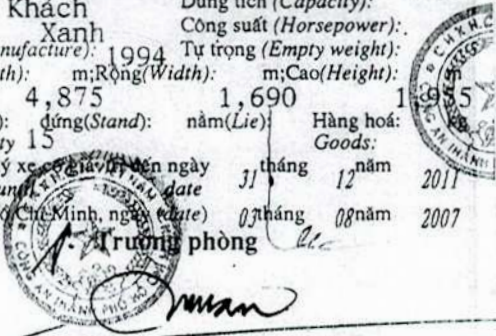 Khách Dung tích (Capacity):
Xanh Công suất (Horsepower):
nufacture): 1994 Tự trọng (Empty weight):
th): m;Rộng(Width): m;Cao(Height): m
4,875 1,690 1,955
): đứng(Stand): nằm(Lie): Hàng hoá: kg
ty 15 Goods:
ý xe có giá trị đến ngày 31 tháng 12 năm 2011
until date
Chí Minh, ngày (date) 03 tháng 08 năm 2007
Trưởng phòng
CÔNG AN THÀNH PHỐ